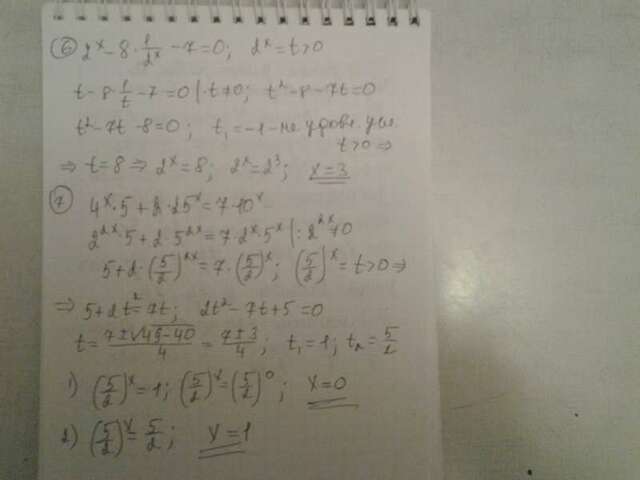 6) 2^x - 8 · 1/2^x - 7 = 0; 2^x = t > 0
t - 8 · 1/t - 7 = 0 | · t ≠ 0; t² - 8 - 7t = 0
t² - 7t - 8 = 0; t₁ = -1 - не удовл. усл.
t > 0 ⇒
⇒ t = 8 ⇒ 2^x = 8; 2^x = 2³; x = 3
7) 4^x · 5 + 2 · 25^x = 7 · 10^x
2^2x · 5 + 2 · 5^2x = 7 · 2^x · 5^x | : 2^2x ≠ 0
5 + 2 · (5/2)^2x = 7 · (5/2)^x; (5/2)^x = t > 0 ⇒
⇒ 5 + 2t² = 7t; 2t² - 7t + 5 = 0
t = (7 ± √(49-40))/4 = (7 ± 3)/4; t₁ = 1; t₂ = 5/2
1) (5/2)^x = 1; (5/2)^x = (5/2)^0; x = 0
2) (5/2)^x = 5/2; x = 1